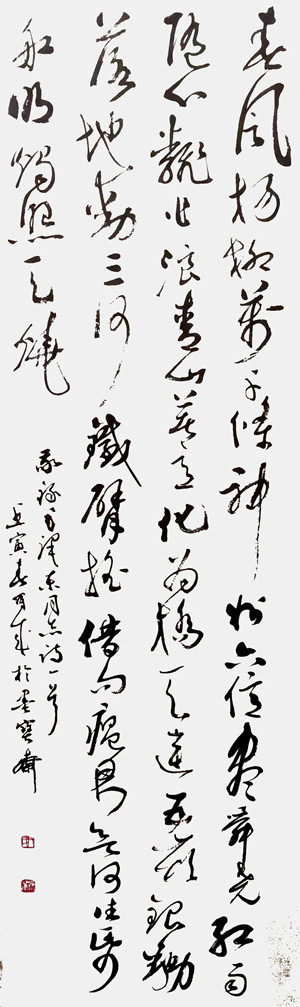 春風楊柳萬千條神州六億盡舜堯紅雨
随心翻作浪青山著意化为橋天連五嶺銀鋤
落地動三河鐵臂搖借問瘟君欲何往紙
船明燭照天燒
敬録毛澤東同志詩一首
丙寅春於墨寶齋